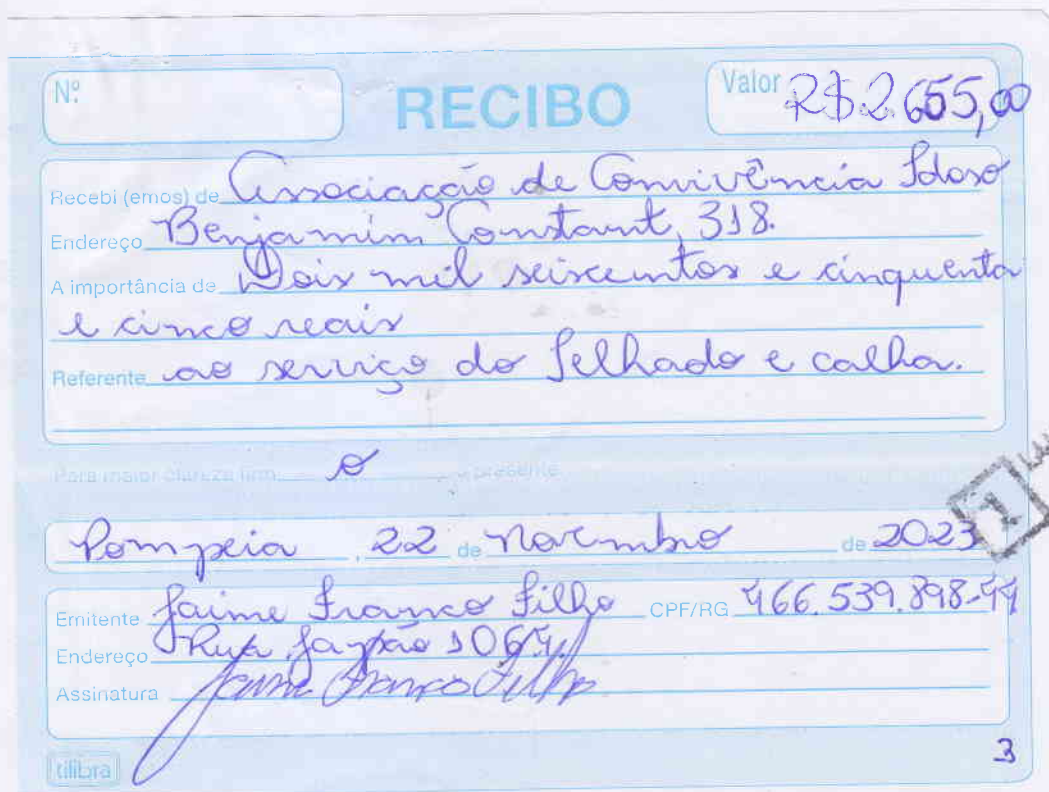 Nº
RECIBO
Valor R$2.655,00
Recebi (emos) de Associação de Convivência Idoso
Endereço Benjamim Constant, 318.
A importância de Dois mil seiscentos e cinquenta
e cinco reais
Referente ao serviço do Telhado e calha.
Para maior clareza firm o o presente
Pompeia, 22 de Novembro de 2023
Emitente Jaime Franco Filho CPF/RG 466.539.898-44
Endereço Rua 1064
Assinatura Jaime Franco Filho
tilibra
3